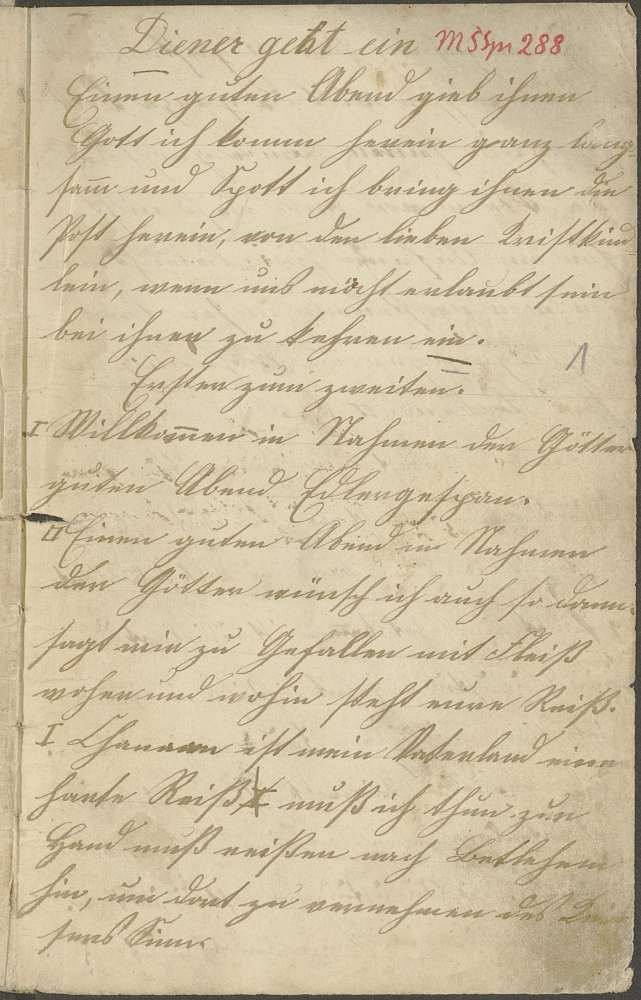 Diener geht ein MSSpr 288
Einen guten Abend gieb ihnen
Gott ich komm herein ganz lang
sam̄ und Spott ich bring ihnen die
Post herein, von den lieben Kristkind
lein, wenn uns möcht erlaubt sein
bei ihnen zu kehren ein.
1
Erster zum zweiten.
I Willkom̄men in Nahmen der Götter
guten Abend Edlergespan.
II Einen guten Abend in Nahmen
der Götter wünsch ich auch so dann.
sagt mir zu Gefallen mit Fleiß
woher und wohin steht eure Reiß.
I Chanaan ist mein Vaterland eine
harte Reiß muß ich thun zur
Hand muß reißen nach Betlehem
hin, um dort zu vernehmen des Kai
sers Sinn.